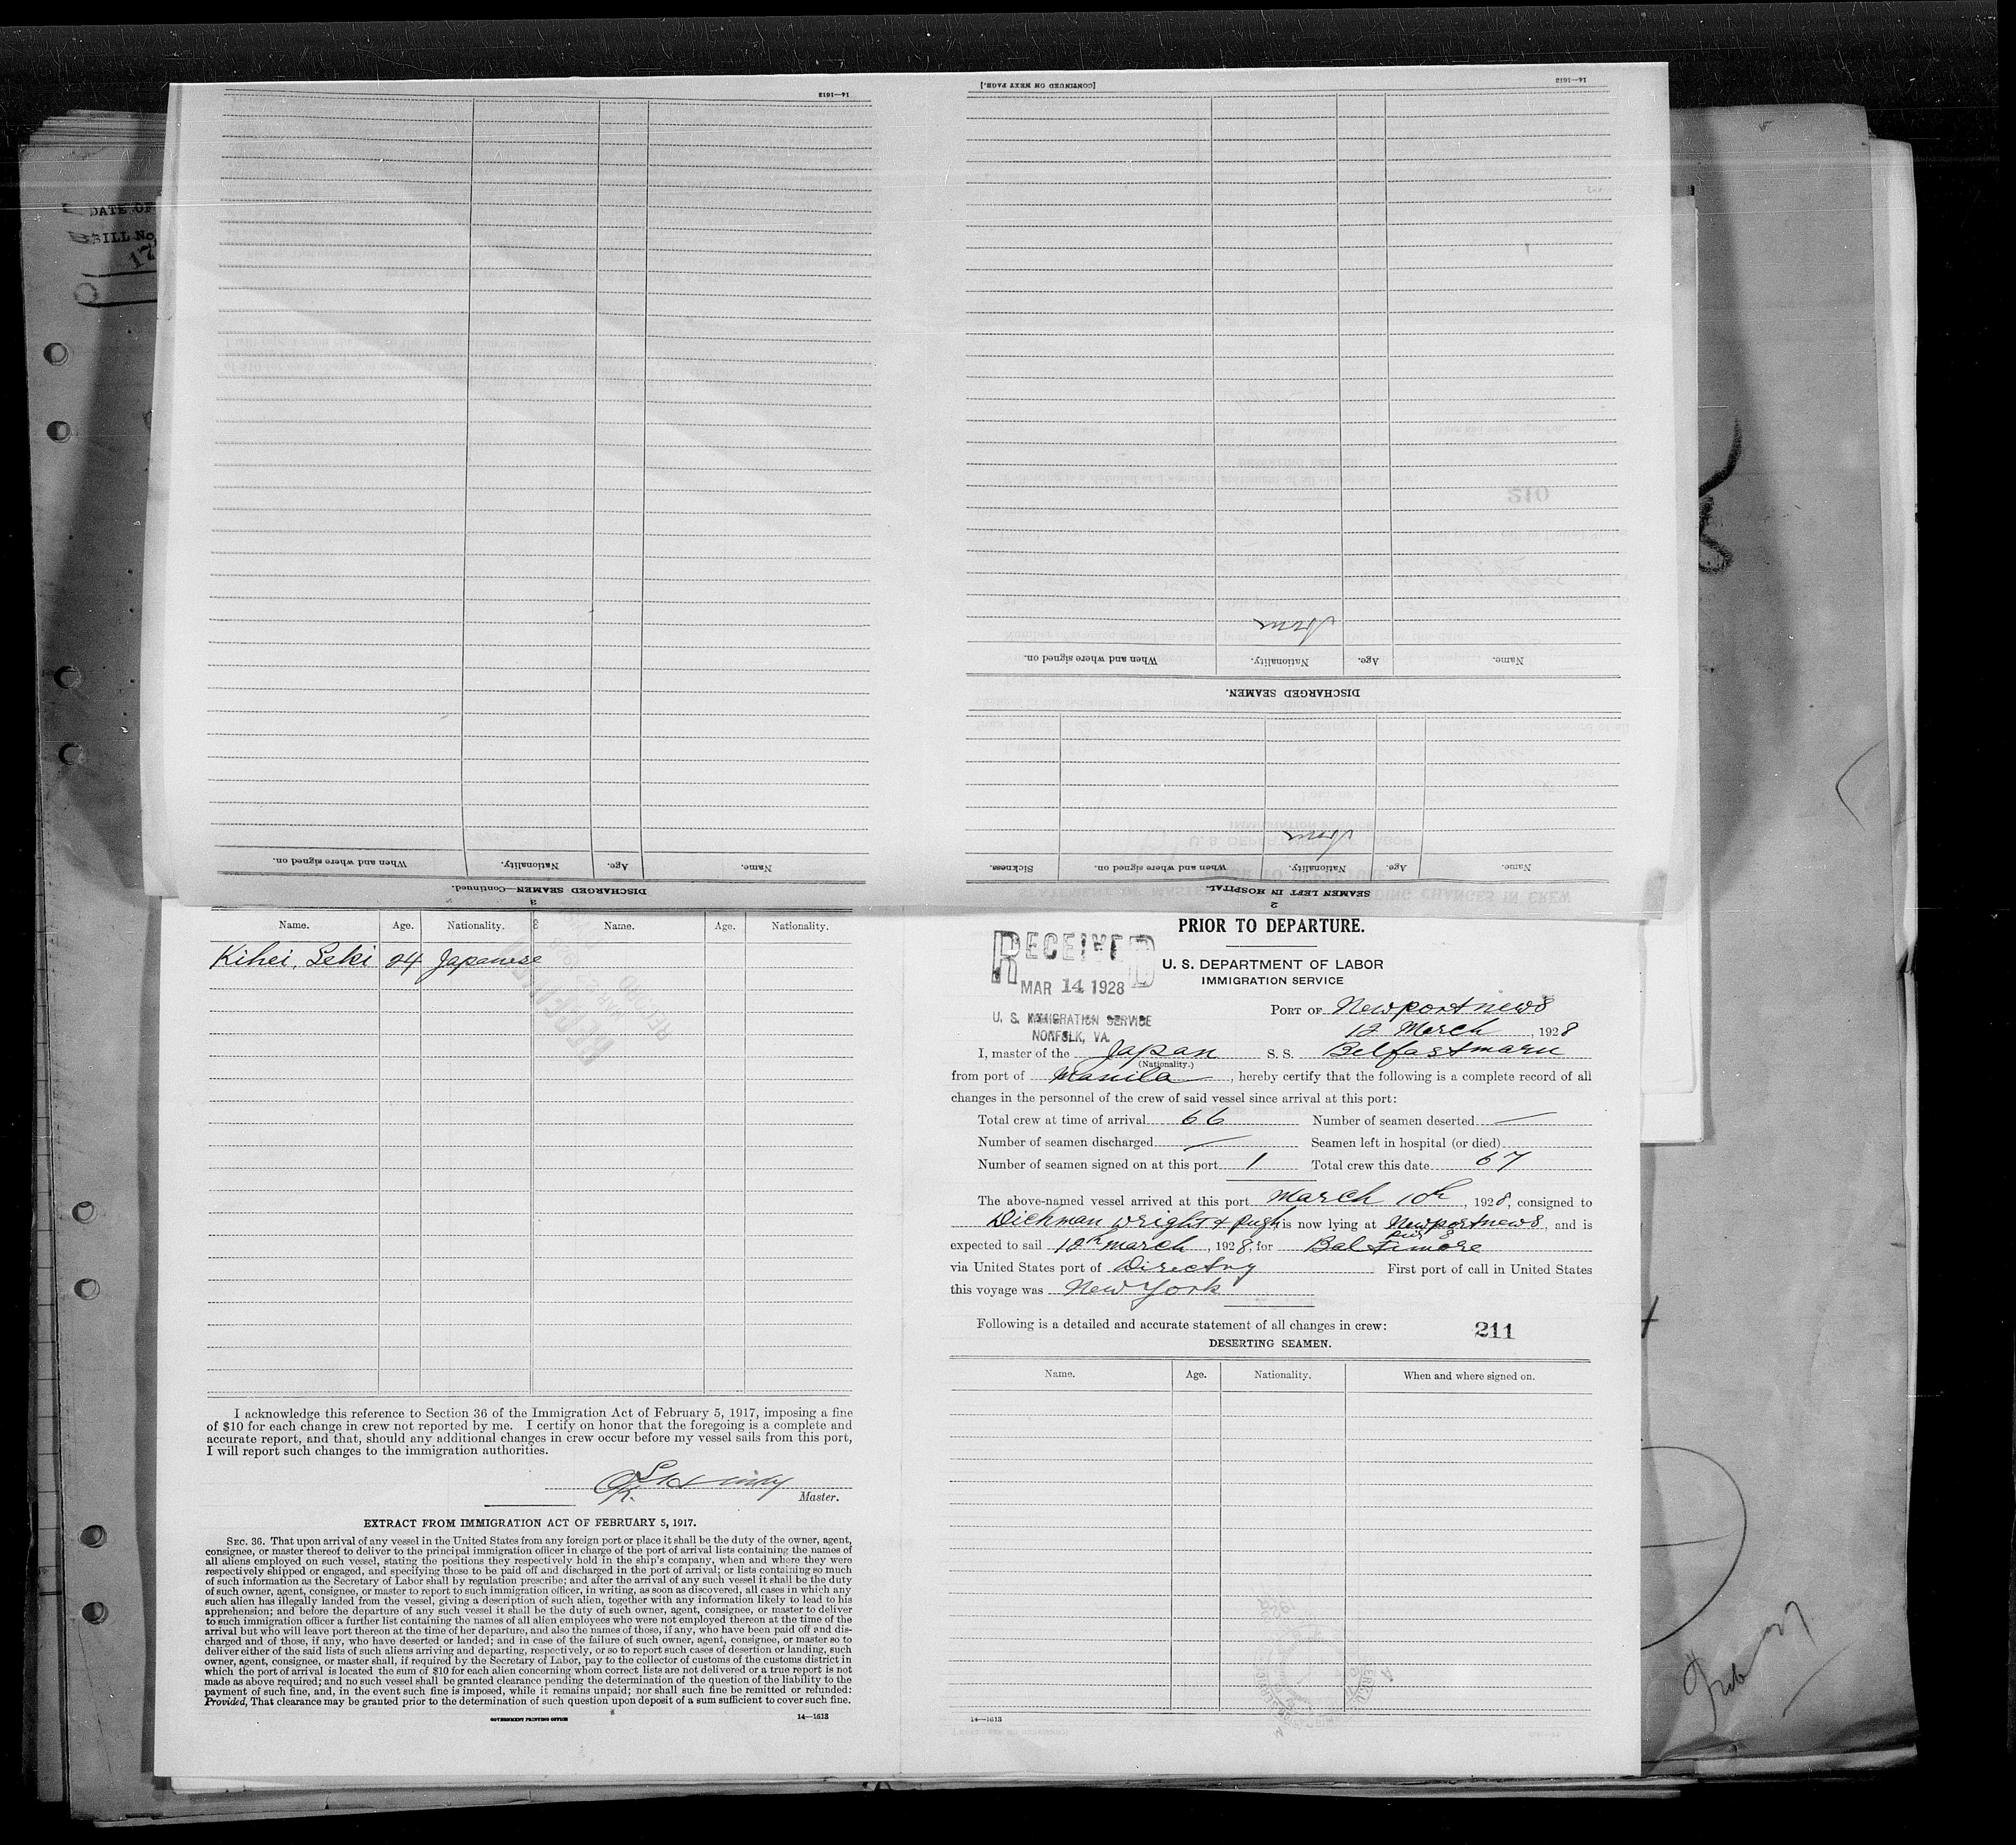 14—1613
[CONTINUED ON NEXT PAGE.]
14—1613
DATE OF
BILL No.
17
None
When and where signed on.
Nationality.
Age.
Name.
DISCHARGED SEAMEN.
None
When and where signed on.
Nationality.
Age.
Name.
Sickness.
When and where signed on.
Nationality.
Age.
Name.
DISCHARGED SEAMEN—Continued.
SEAMEN LEFT IN HOSPITAL.
3
2
Name. Age. Nationality. Name. Age. Nationality.
Kihei, Seki 24 Japanese
I acknowledge this reference to Section 36 of the Immigration Act of February 5, 1917, imposing a fine
of $10 for each change in crew not reported by me. I certify on honor that the foregoing is a complete and
accurate report, and that, should any additional changes in crew occur before my vessel sails from this port,
I will report such changes to the immigration authorities.
Master.
EXTRACT FROM IMMIGRATION ACT OF FEBRUARY 5, 1917.
SEC. 36. That upon arrival of any vessel in the United States from any foreign port or place it shall be the duty of the owner, agent,
consignee, or master thereof to deliver to the principal immigration officer in charge of the port of arrival lists containing the names of
all aliens employed on such vessel, stating the positions they respectively hold in the ship's company, when and where they were
respectively shipped or engaged, and specifying those to be paid off and discharged in the port of arrival; or lists containing so much
of such information as the Secretary of Labor shall by regulation prescribe; and after the arrival of any such vessel it shall be the duty
of such owner, agent, consignee, or master to report to such immigration officer, in writing, as soon as discovered, all cases in which any
such alien has illegally landed from the vessel, giving a description of such alien, together with any information likely to lead to his
apprehension; and before the departure of any such vessel it shall be the duty of such owner, agent, consignee, or master to deliver
to such immigration officer a further list containing the names of all alien employees who were not employed thereon at the time of the
arrival but who will leave port thereon at the time of her departure, and also the names of those, if any, who have been paid off and dis-
charged and of those, if any, who have deserted or landed; and in case of the failure of such owner, agent, consignee, or master so to
deliver either of the said lists of such aliens arriving and departing, respectively, or so to report such cases of desertion or landing, such
owner, agent, consignee, or master shall, if required by the Secretary of Labor, pay to the collector of customs of the customs district in
which the port of arrival is located the sum of $10 for each alien concerning whom correct lists are not delivered or a true report is not
made as above required; and no such vessel shall be granted clearance pending the determination of the question of the liability to the
payment of such fine, and, in the event such fine is imposed, while it remains unpaid; nor shall such fine be remitted or refunded:
Provided, That clearance may be granted prior to the determination of such question upon deposit of a sum sufficient to cover such fine.
GOVERNMENT PRINTING OFFICE
14—1613
PRIOR TO DEPARTURE.
RECEIVED
MAR 14 1928
U. S. IMMIGRATION SERVICE
NORFOLK, VA.
U. S. DEPARTMENT OF LABOR
IMMIGRATION SERVICE
PORT OF Newportnews
12 March, 1928
I, master of the Japan S. S. Belfastmaru
(Nationality.)
from port of Manila, hereby certify that the following is a complete record of all
changes in the personnel of the crew of said vessel since arrival at this port:
Total crew at time of arrival 66 Number of seamen deserted —
Number of seamen discharged — Seamen left in hospital (or died)
Number of seamen signed on at this port 1 Total crew this date 67
The above-named vessel arrived at this port March 10th, 1928, consigned to
Dichman Wright & Pugh is now lying at Newportnews, and is
pier 8
expected to sail 12th march, 1928, for Baltimore
via United States port of Directry First port of call in United States
this voyage was New York
Following is a detailed and accurate statement of all changes in crew:
211
DESERTING SEAMEN.
Name. Age. Nationality. When and where signed on.
14—1613